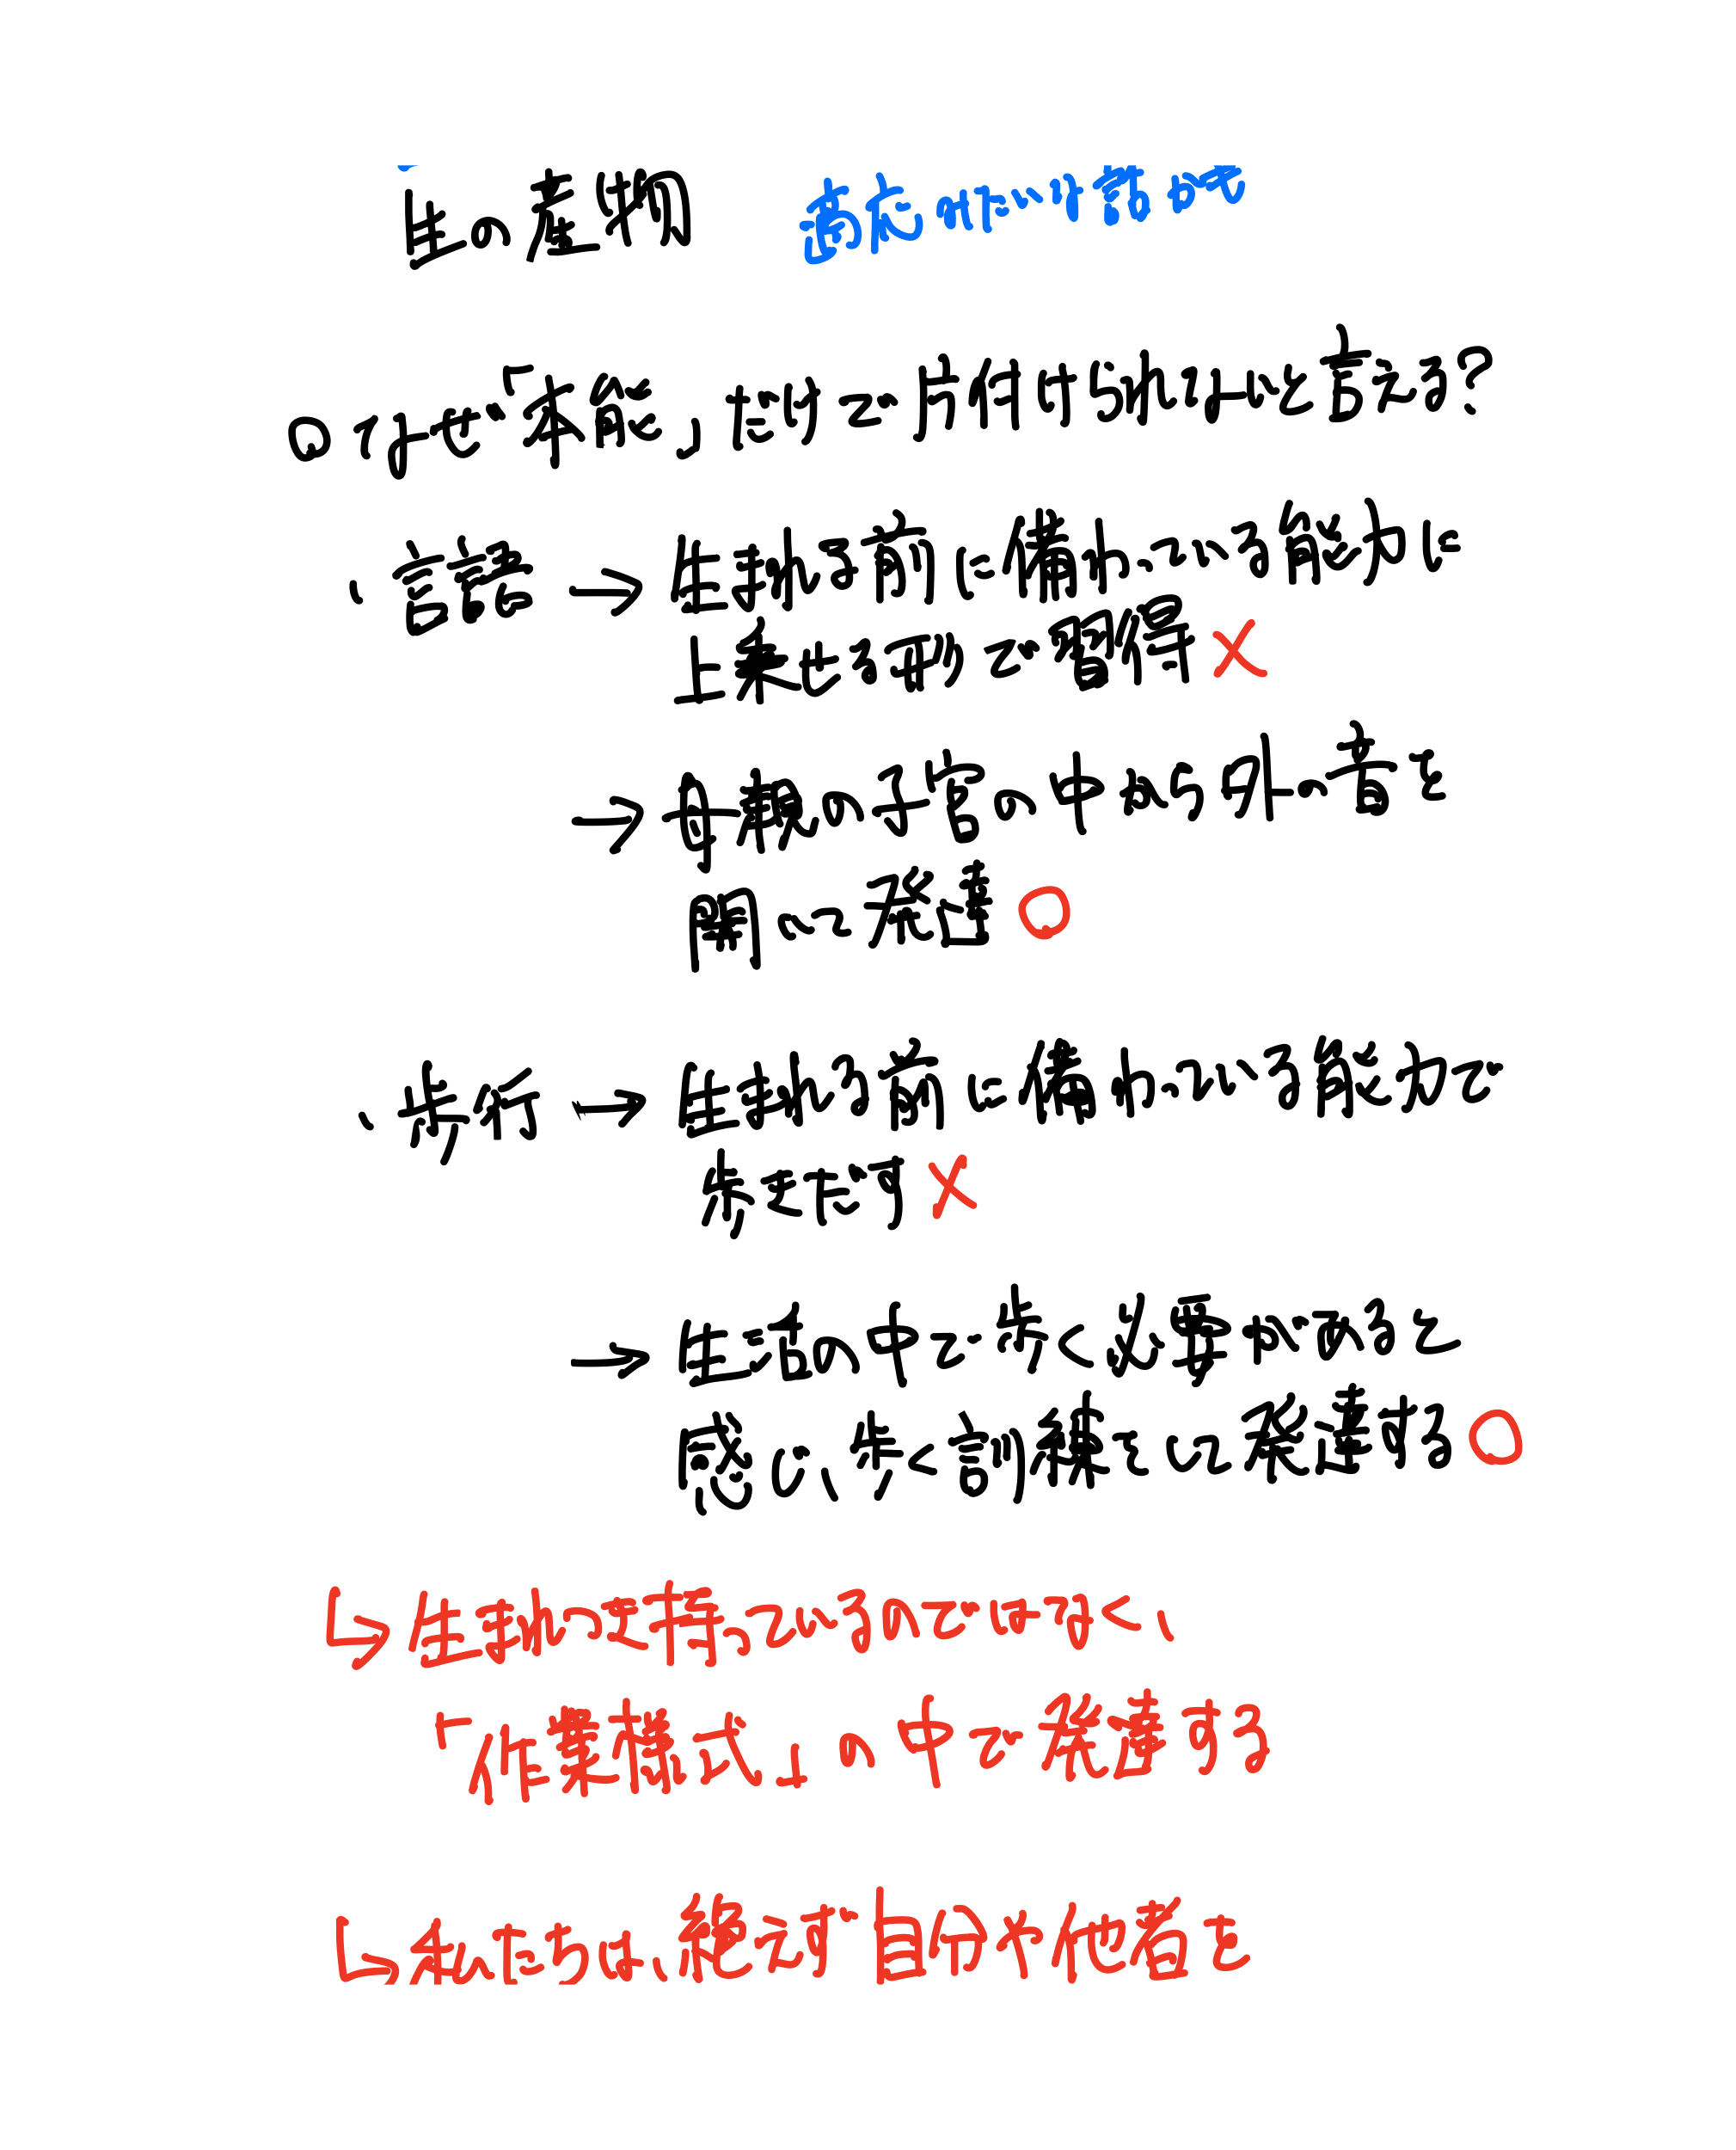 生の産物
○なぜ「本能」だけで片付けられないと言える?
・言語→生まれる前に備わっている能力に
上乗せる形で習得×
→母親の子宮の中から外の音を
聞いて発達○
・歩行→生まれる前に備わっている能力で
歩きだす×
→生活の中で歩く必要があると
感じ、歩く訓練をして発達する○
↳生まれつき持っているのではなく、
「作業様式」の中で発達する
↳私たちは、絶対自分や他者を